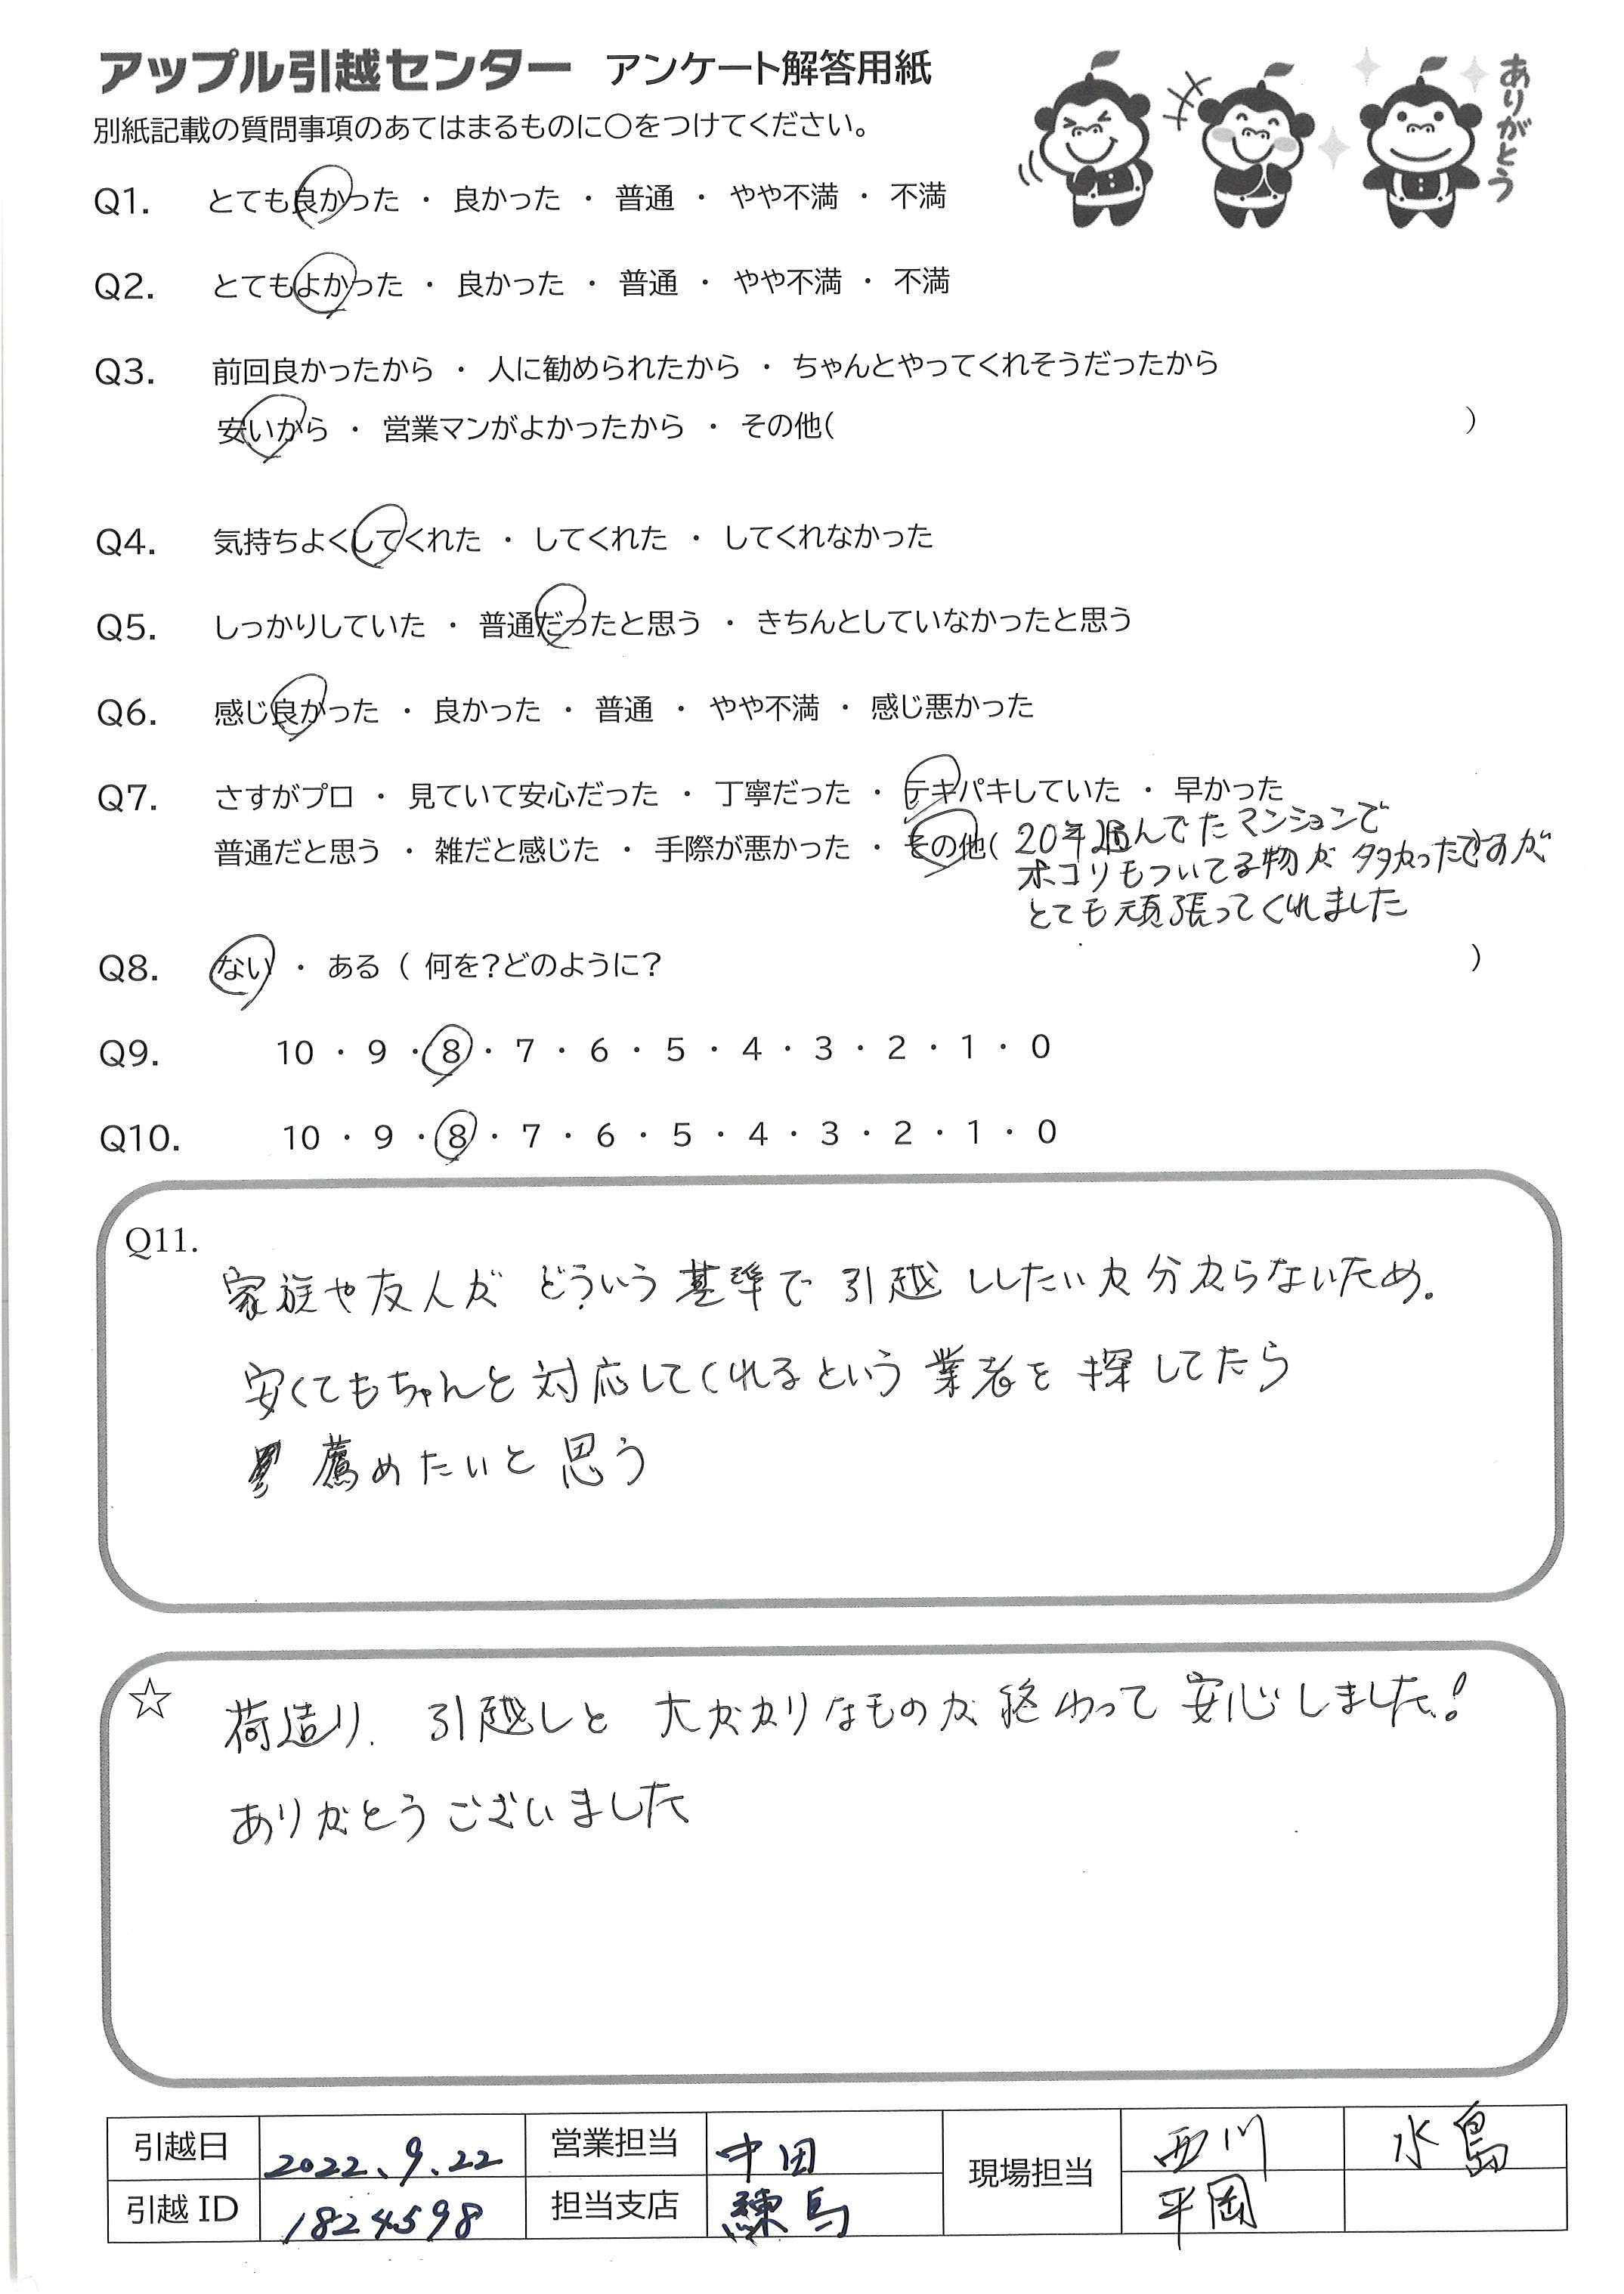 アップル引越センター アンケート解答用紙
ありがとう
別紙記載の質問事項のあてはまるものに○をつけてください。
Q1. とても良かった ・ 良かった ・ 普通 ・ やや不満 ・ 不満
Q2. とてもよかった ・ 良かった ・ 普通 ・ やや不満 ・ 不満
Q3. 前回良かったから ・ 人に勧められたから ・ ちゃんとやってくれそうだったから
安いから ・ 営業マンがよかったから ・ その他( )
Q4. 気持ちよくしてくれた ・ してくれた ・ してくれなかった
Q5. しっかりしていた ・ 普通だったと思う ・ きちんとしていなかったと思う
Q6. 感じ良かった ・ 良かった ・ 普通 ・ やや不満 ・ 感じ悪かった
Q7. さすがプロ ・ 見ていて安心だった ・ 丁寧だった ・ テキパキしていた ・ 早かった
普通だと思う ・ 雑だと感じた ・ 手際が悪かった ・ その他( 20年住んでたマンションで
ホコリもついてる物が多かったですが )
とても頑張ってくれました
Q8. ない ・ ある ( 何を?どのように? )
Q9. 10 ・ 9 ・ 8 ・ 7 ・ 6 ・ 5 ・ 4 ・ 3 ・ 2 ・ 1 ・ 0
Q10. 10 ・ 9 ・ 8 ・ 7 ・ 6 ・ 5 ・ 4 ・ 3 ・ 2 ・ 1 ・ 0
Q11.
家族や友人がどういう基準で引越ししたいか分からないため。
安くてもちゃんと対応してくれるという業者を探してたら
薦めたいと思う
☆ 荷造り、引越しと大がかりなものが終わって安心しました!
ありがとうございました
引越日 2022、9、22 営業担当 中田 現場担当 西川 水島
引越ID 1824598 担当支店 練馬 平岡